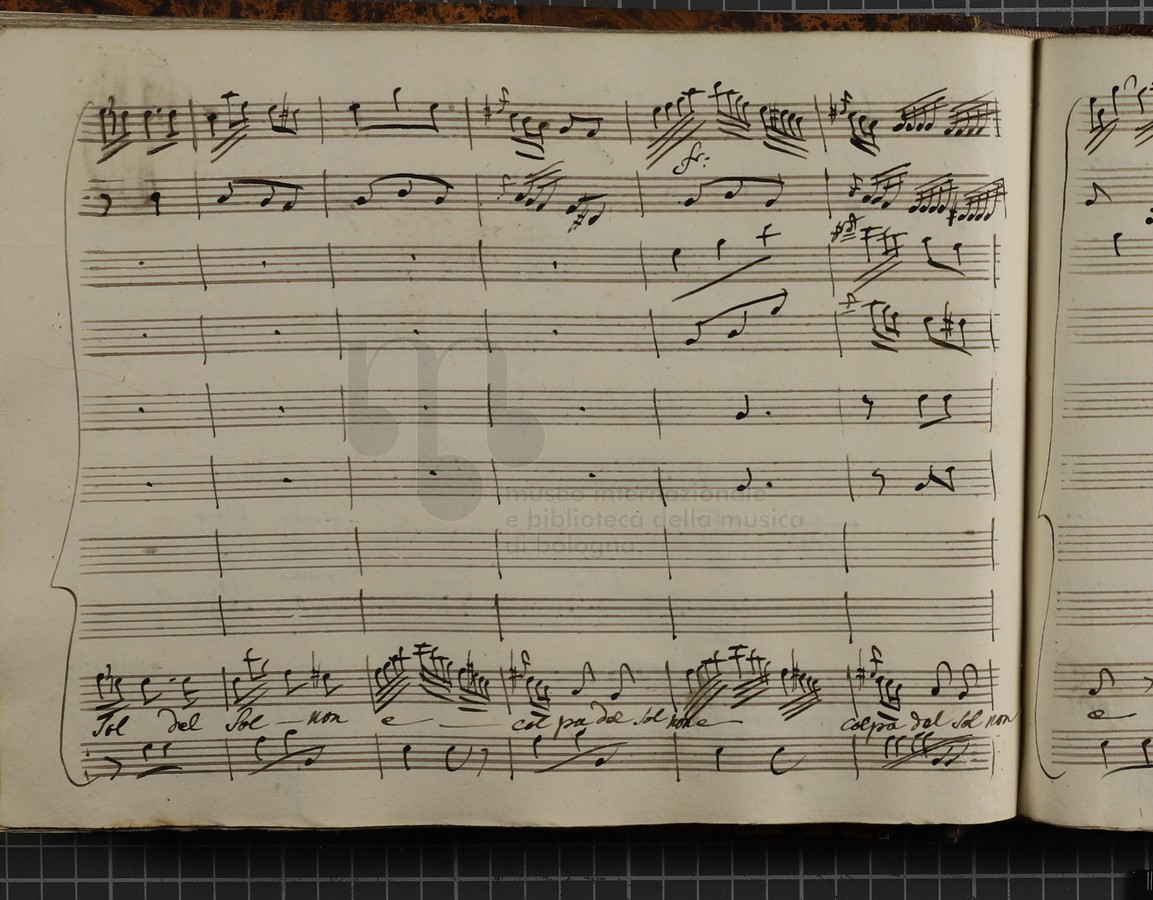 fr:
museo internazionale
e biblioteca della musica
di bologna.
Sol del Sol - non e - colpa del Sol non e - colpa del Sol non
e